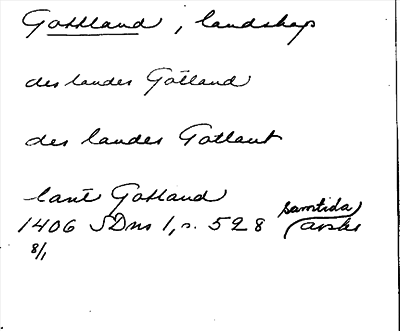 Gottland, landskap
des landes Götland
des landes Gotlant
lant Gotland
1406 SDns 1, s. 528 (samtida avskr
8/1